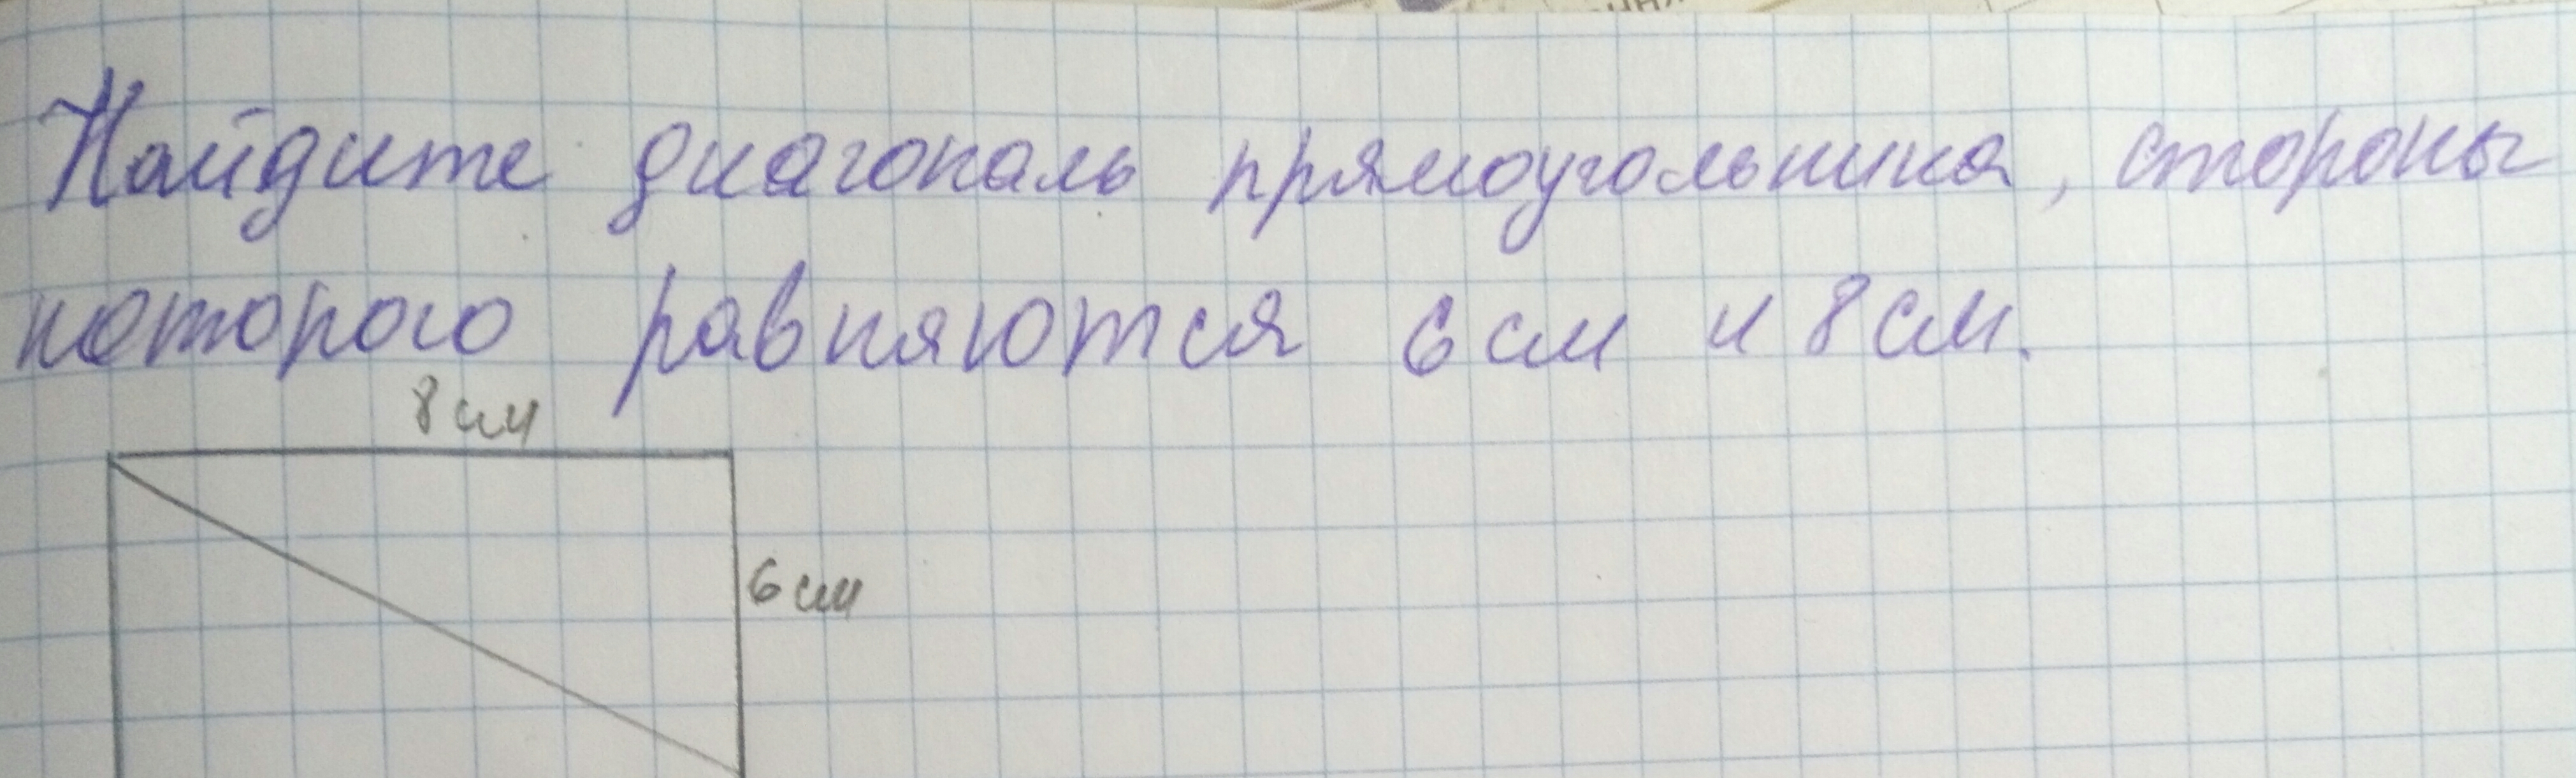 Найдите диагональ прямоугольника, стороны
которого равняются 6 см и 8 см.
8 см
6 см